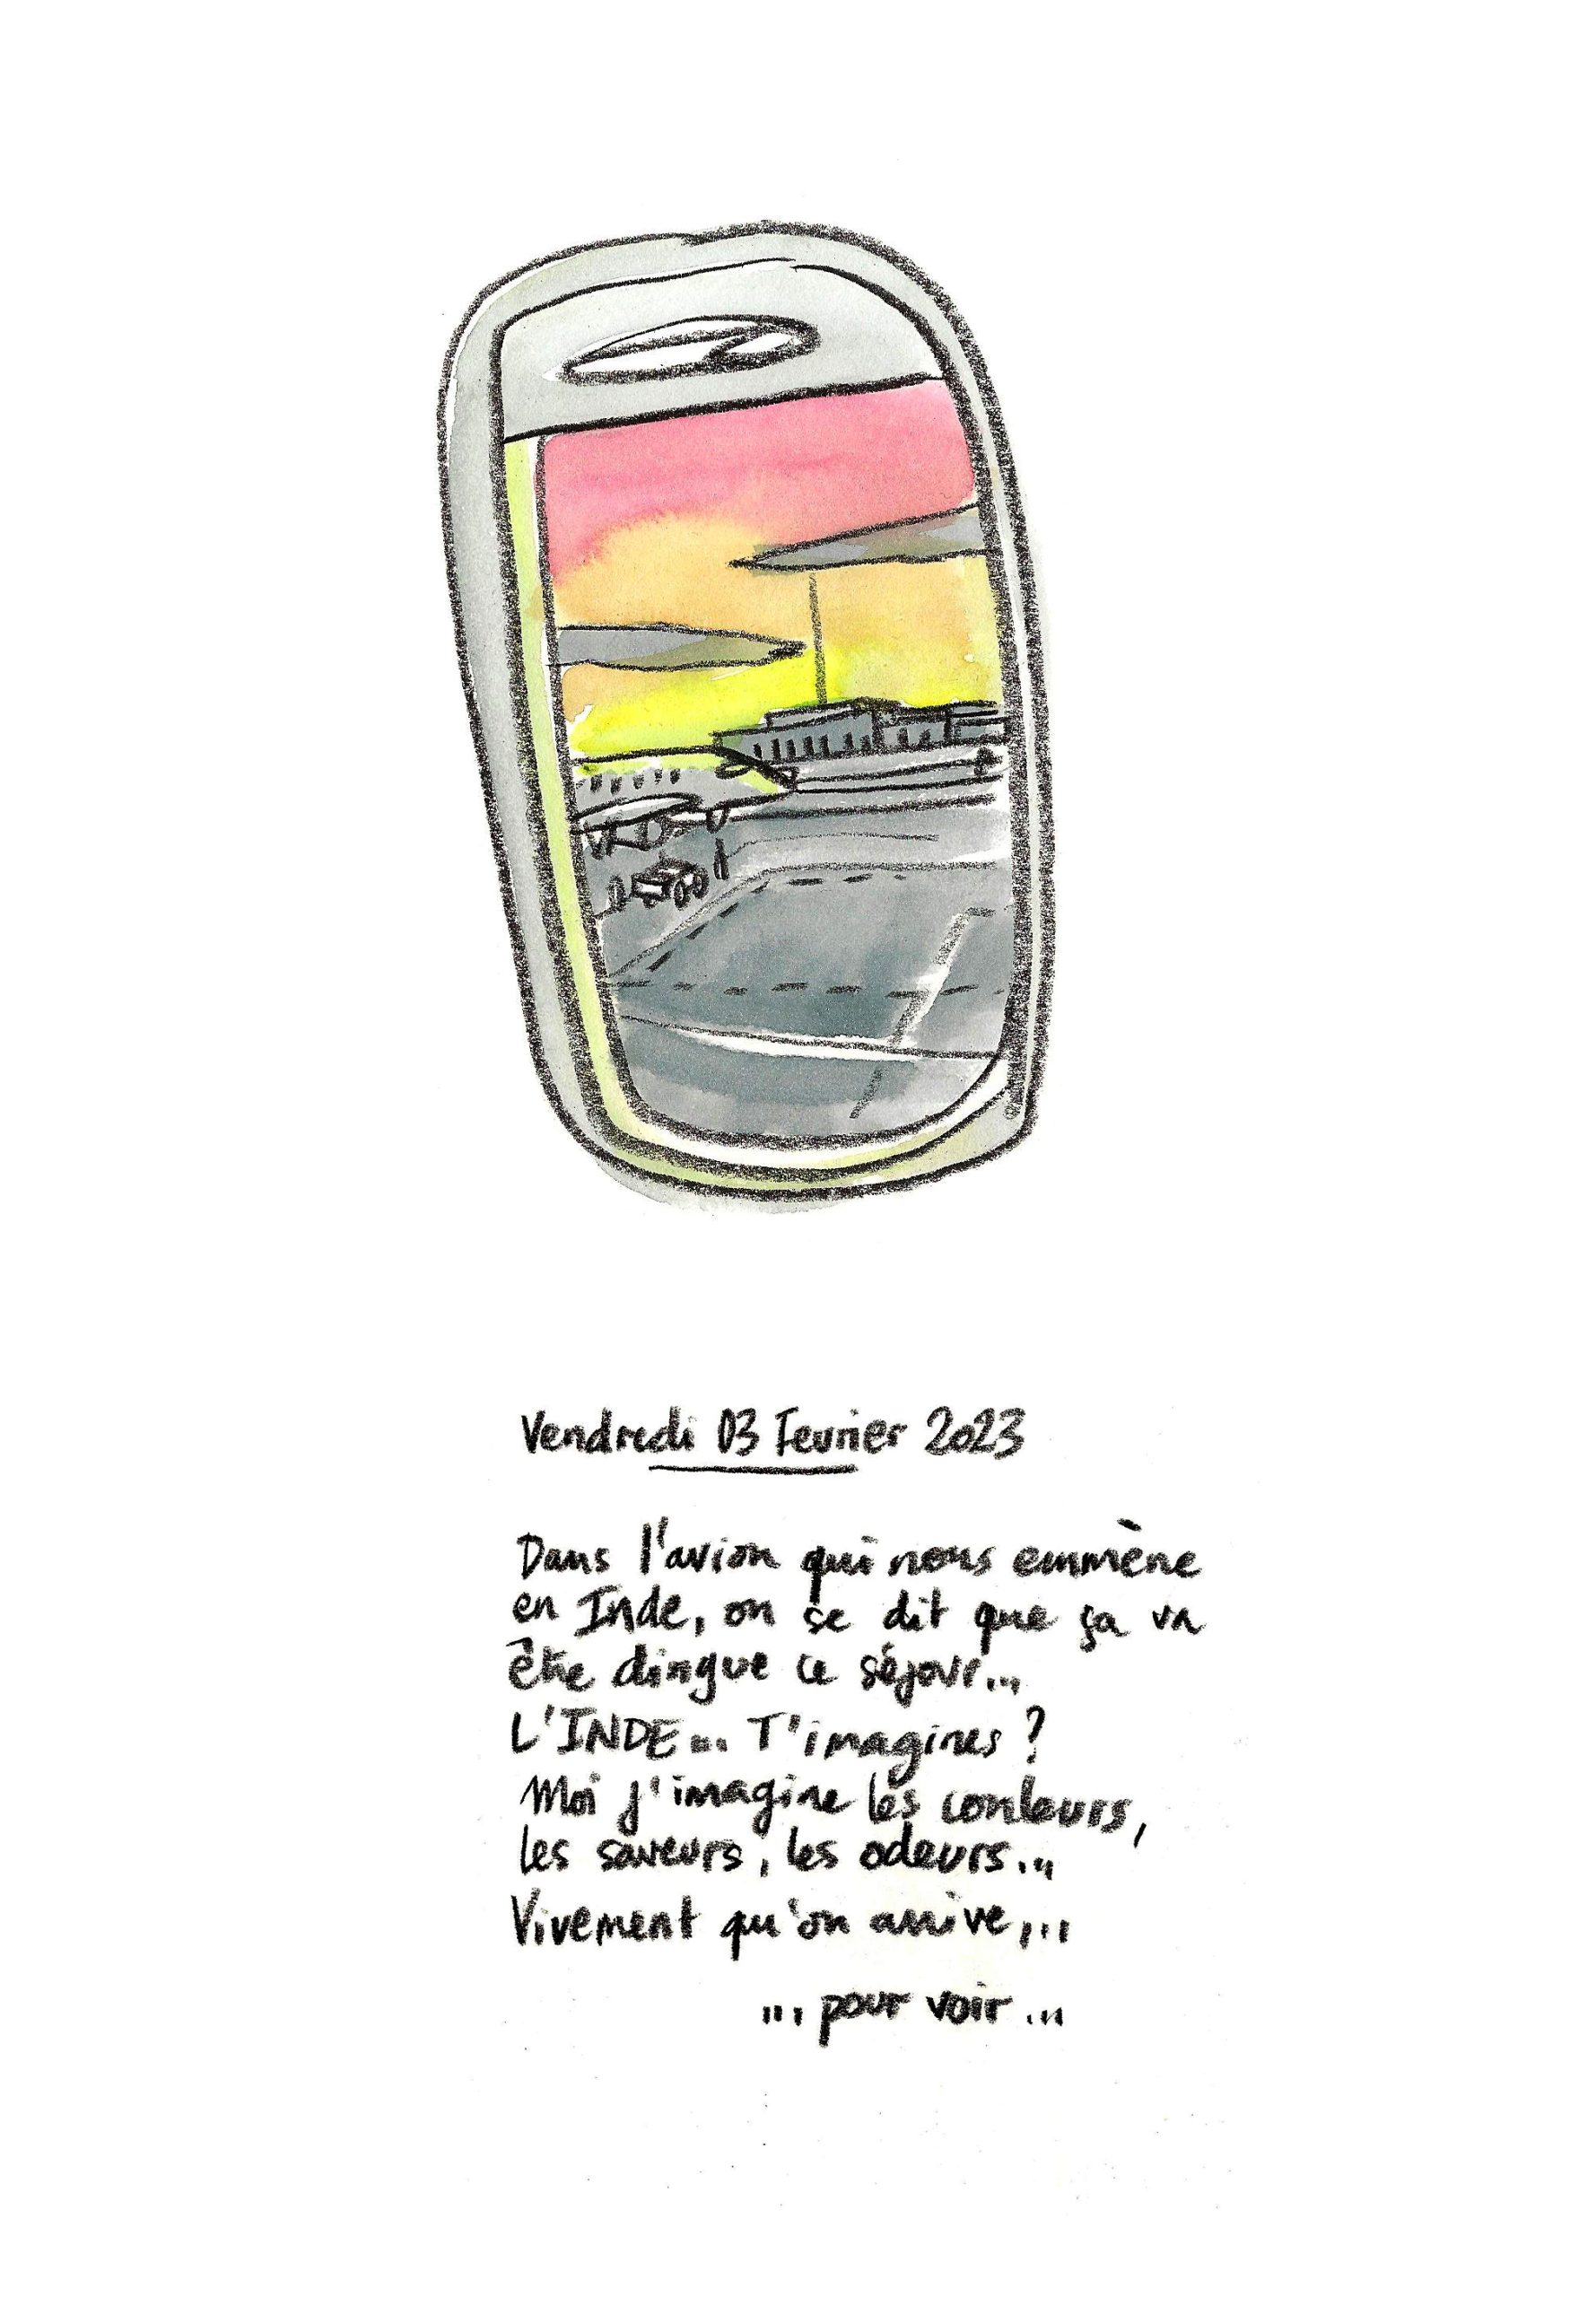 Vendredi 03 Fevrier 2023
Dans l'avion qui nous emmène
en Inde, on se dit que ça va
être dingue ce séjour...
L'INDE... T'imagines ?
Moi j'imagine les couleurs,
les saveurs, les odeurs...
Vivement qu'on arrive,...
... pour voir ...